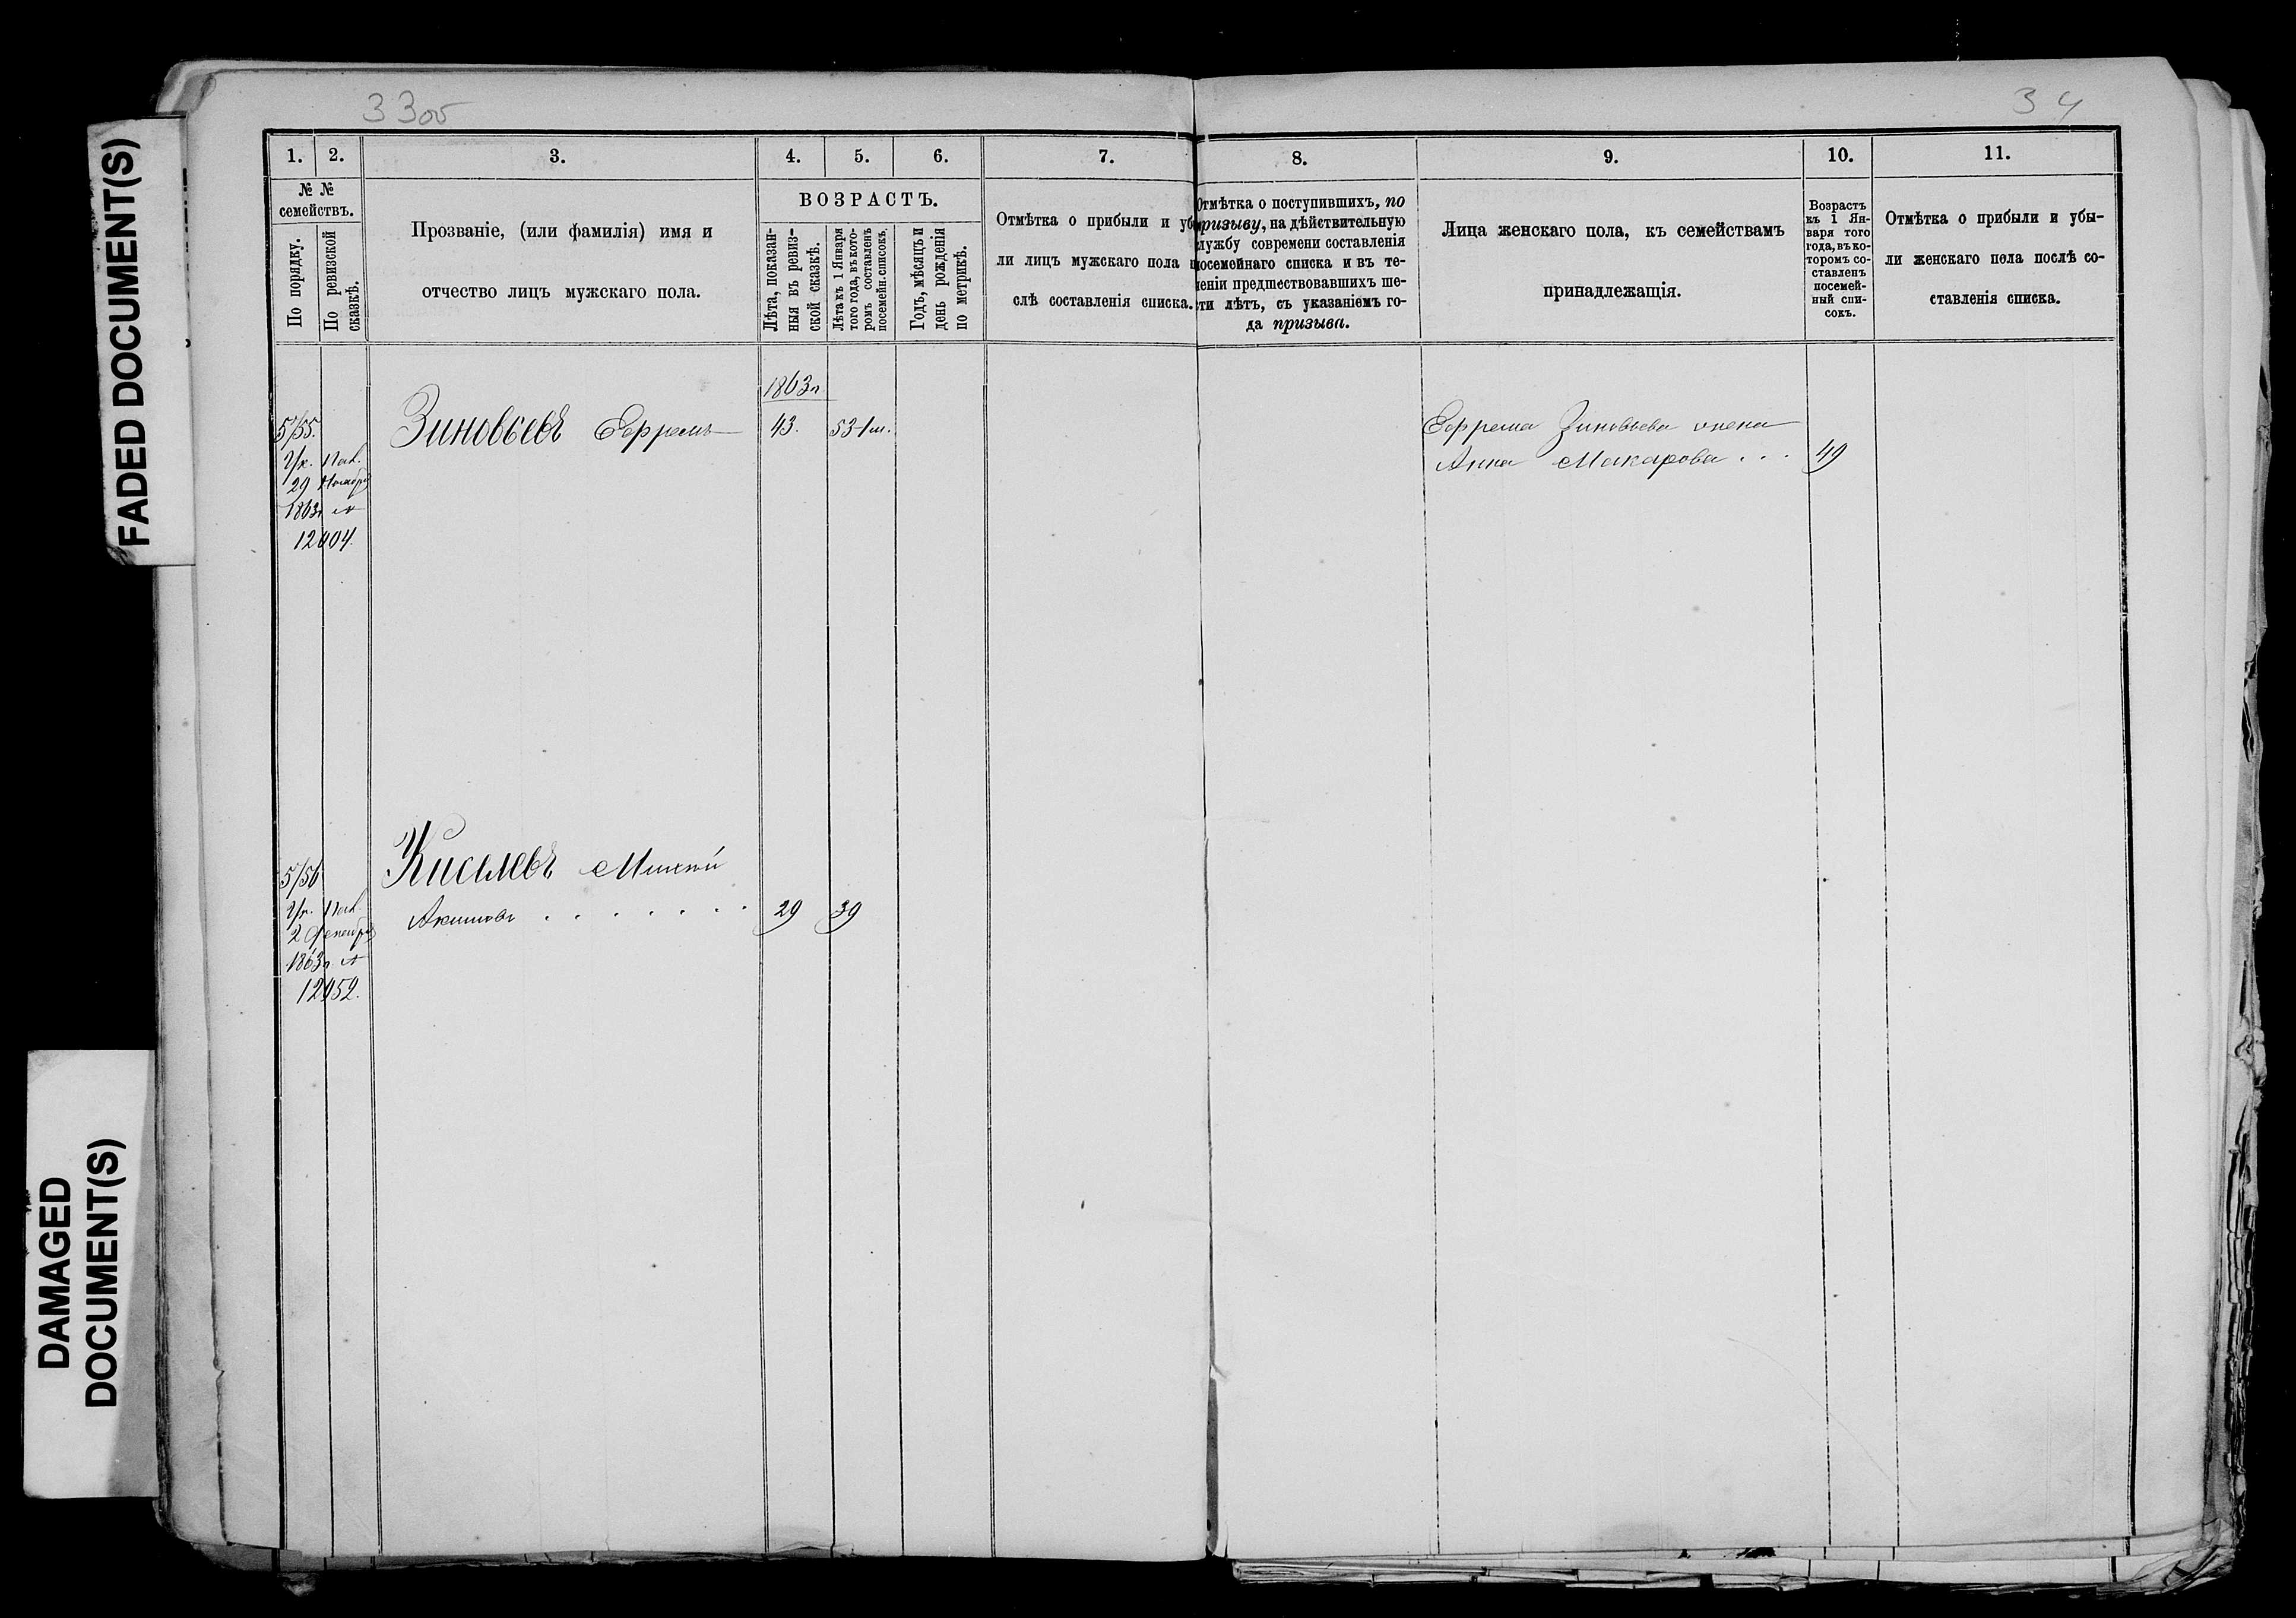 FADED DOCUMENT(S)
DAMAGED
DOCUMENT(S)
33об
34
1. 2. 3. 4. 5. 6. 7. 8. 9. 10. 11.
№ №
семействъ.
По порядку.
По ревизской
сказкѣ.
Прозваніе, (или фамилія) имя и
отчество лицъ мужскаго пола.
ВОЗРАСТЪ.
Лѣта, показан-
ныя въ ревиз-
ской сказкѣ.
Лѣта къ 1 Января
того года, въ кото-
ромъ составленъ
посемейн. списокъ.
Годъ, мѣсяцъ и
день рожденія
по метрикѣ.
Отмѣтка о прибыли и уб
ли лицъ мужскаго пола п
слѣ составленія списка.
Отмѣтка о поступившихъ, по
призыву, на дѣйствительную
лужбу современи составленія
посемейнаго списка и въ те-
ченіи предшествовавшихъ ше-
сти лѣтъ, съ указаніемъ го-
да призыва.
Лица женскаго пола, къ семействамъ
принадлежащія.
Возрастъ
къ 1 Ян-
варя того
года, въ ко-
торомъ со-
ставленъ
посемей-
ный спи-
сокъ.
Отмѣтка о прибыли и убы-
ли женскаго пола послѣ со-
ставленія списка.
1863г.
5/55. Зиновьевъ Ефремъ 43. 53
Ефрема Зиновьева жена
Анна Макарова . . . 49
29 Ноября
1863г №
12404.
5/56 Киселевъ
Акимовъ . . . . . . . 29 39
2 Декабря
1863г №
12452.